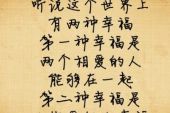 听说这个世界上
有两种幸福
第一种幸福是
两个相爱的人
能够在一起
第二种幸福是